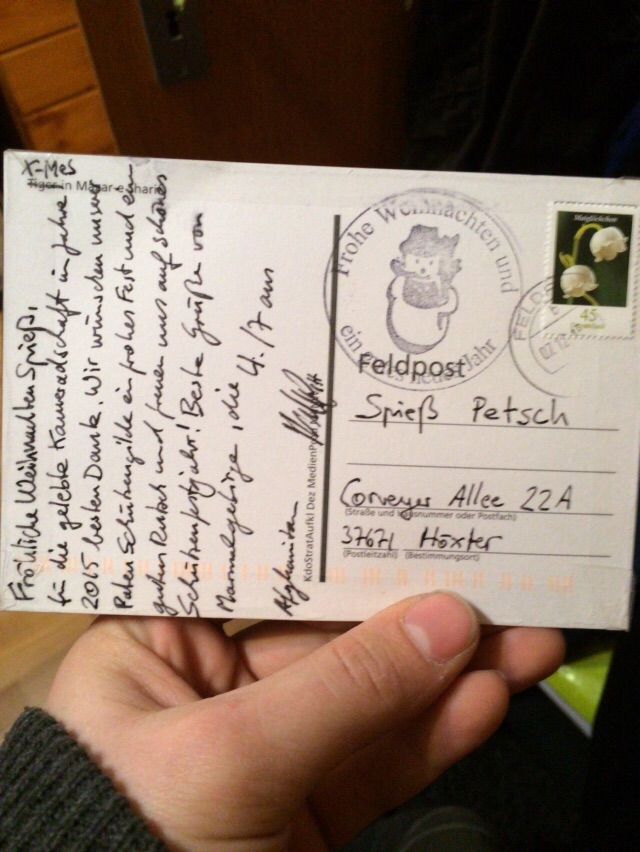 X-Mes
Tiger in Mazar-e-Sharif
Fröhliche Weihnachten Spieß,
für die gelebte Kameradschaft im Jahre
2015 besten Dank. Wir wünschen unserer
Paten Schützengilde ein frohes Fest und ein
guten Rutsch und freuen uns auf schönes
Schützenfestjahr! Beste Grüße vom
Marmalgebirge, die 4./7 aus
Afghanistan
KdoStratAufkl Dez MedienPr
Frohe Weihnachten und
ein neues Jahr
Maiglöckchen
45
FELDP
02.12
Feldpost
Spieß Petsch
Corveyer Allee 22A
(Straße und Hausnummer oder Postfach)
37671 Höxter
(Postleitzahl) (Bestimmungsort)